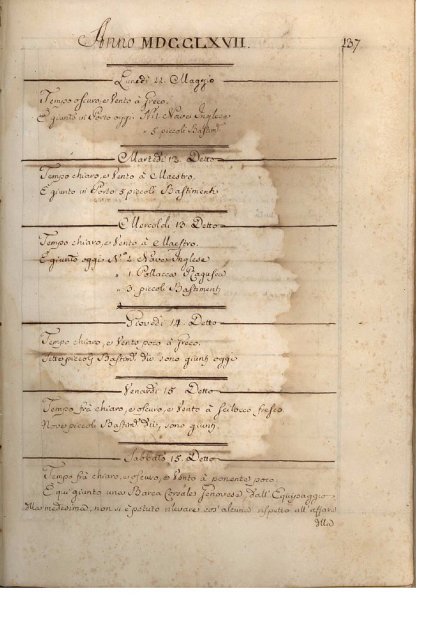 Anno MDCCLXVII.
137
Lunedì 11. Maggio
Tempo oscuro, e Vento à Greco.
È giunto in Porto oggi N.º 1. Nave Inglese
" 5 piccoli Bastim.ti
Martedì 12. Detto
Tempo chiaro, e Vento à Maestro.
È giunto in Porto 5 piccoli Bastimenti
Mercoldì 13. Detto
Tempo chiaro, e Vento à Maestro.
È giunto oggi N.º 2. Nave Inglese
" 1. Pollacca Ragusea
" 3. piccoli Bastimenti
Giovedì 14. Detto
Tempo chiaro, e Vento poco à Greco.
Sette piccoli Bastim.ti sono giunti oggi
Venardì 15. Detto
Tempo frà chiaro, e oscuro, e Vento à Scilocco fresco.
Nove piccoli Bastim.ti sono giunti.
Sabbato 15. Detto
Tempo frà chiaro, e oscuro, e Vento à ponente poco.
È qui giunto una Barca Genovese, dall'Equipaggio
della medesima, non si è potuto ricavare cos'alcuna rispetto all'affare
della